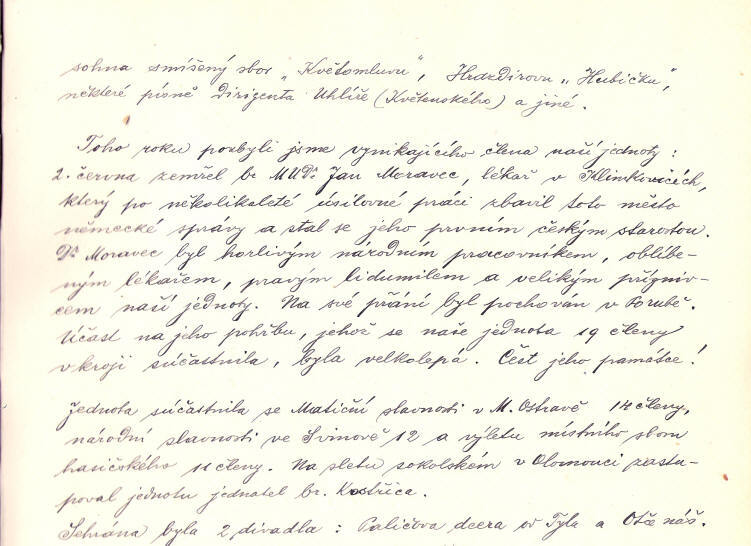 sohna smíšený sbor „Květomluvu", Hrazdirovu „Hubičku",
některé písně dirigenta Uhlíře (Květenského) a jiné.
Toho roku pozbyli jsme vynikajícího člena naší jednoty:
2. června zemřel br. MUDr Jan Moravec, lékař v Klimkovicích,
který po několikaleté úsilovné práci zbavil toto město
německé správy a stal se jeho prvním českým starostou.
Dr Moravec byl horlivým národním pracovníkem, oblíbe-
ným lékařem, pravým lidumilem a velikým přízniv-
cem naší jednoty. Na své přání byl pochován v Porubě.
Účast na jeho pohřbu, jehož se naše jednota 19 členy
v kroji súčastnila, byla velkolepá. Čest jeho památce!
Jednota súčastnila se Matiční slavnosti v M. Ostravě 14 členy,
národní slavnosti ve Svinově 12 a výletu místního sboru
hasičského 11 členy. Na sletu sokolském v Olomouci zastu-
poval jednotu jednatel br. Kostřica.
Sehrána byla 2 divadla: Paličova dcera od Tyla a Otče náš.